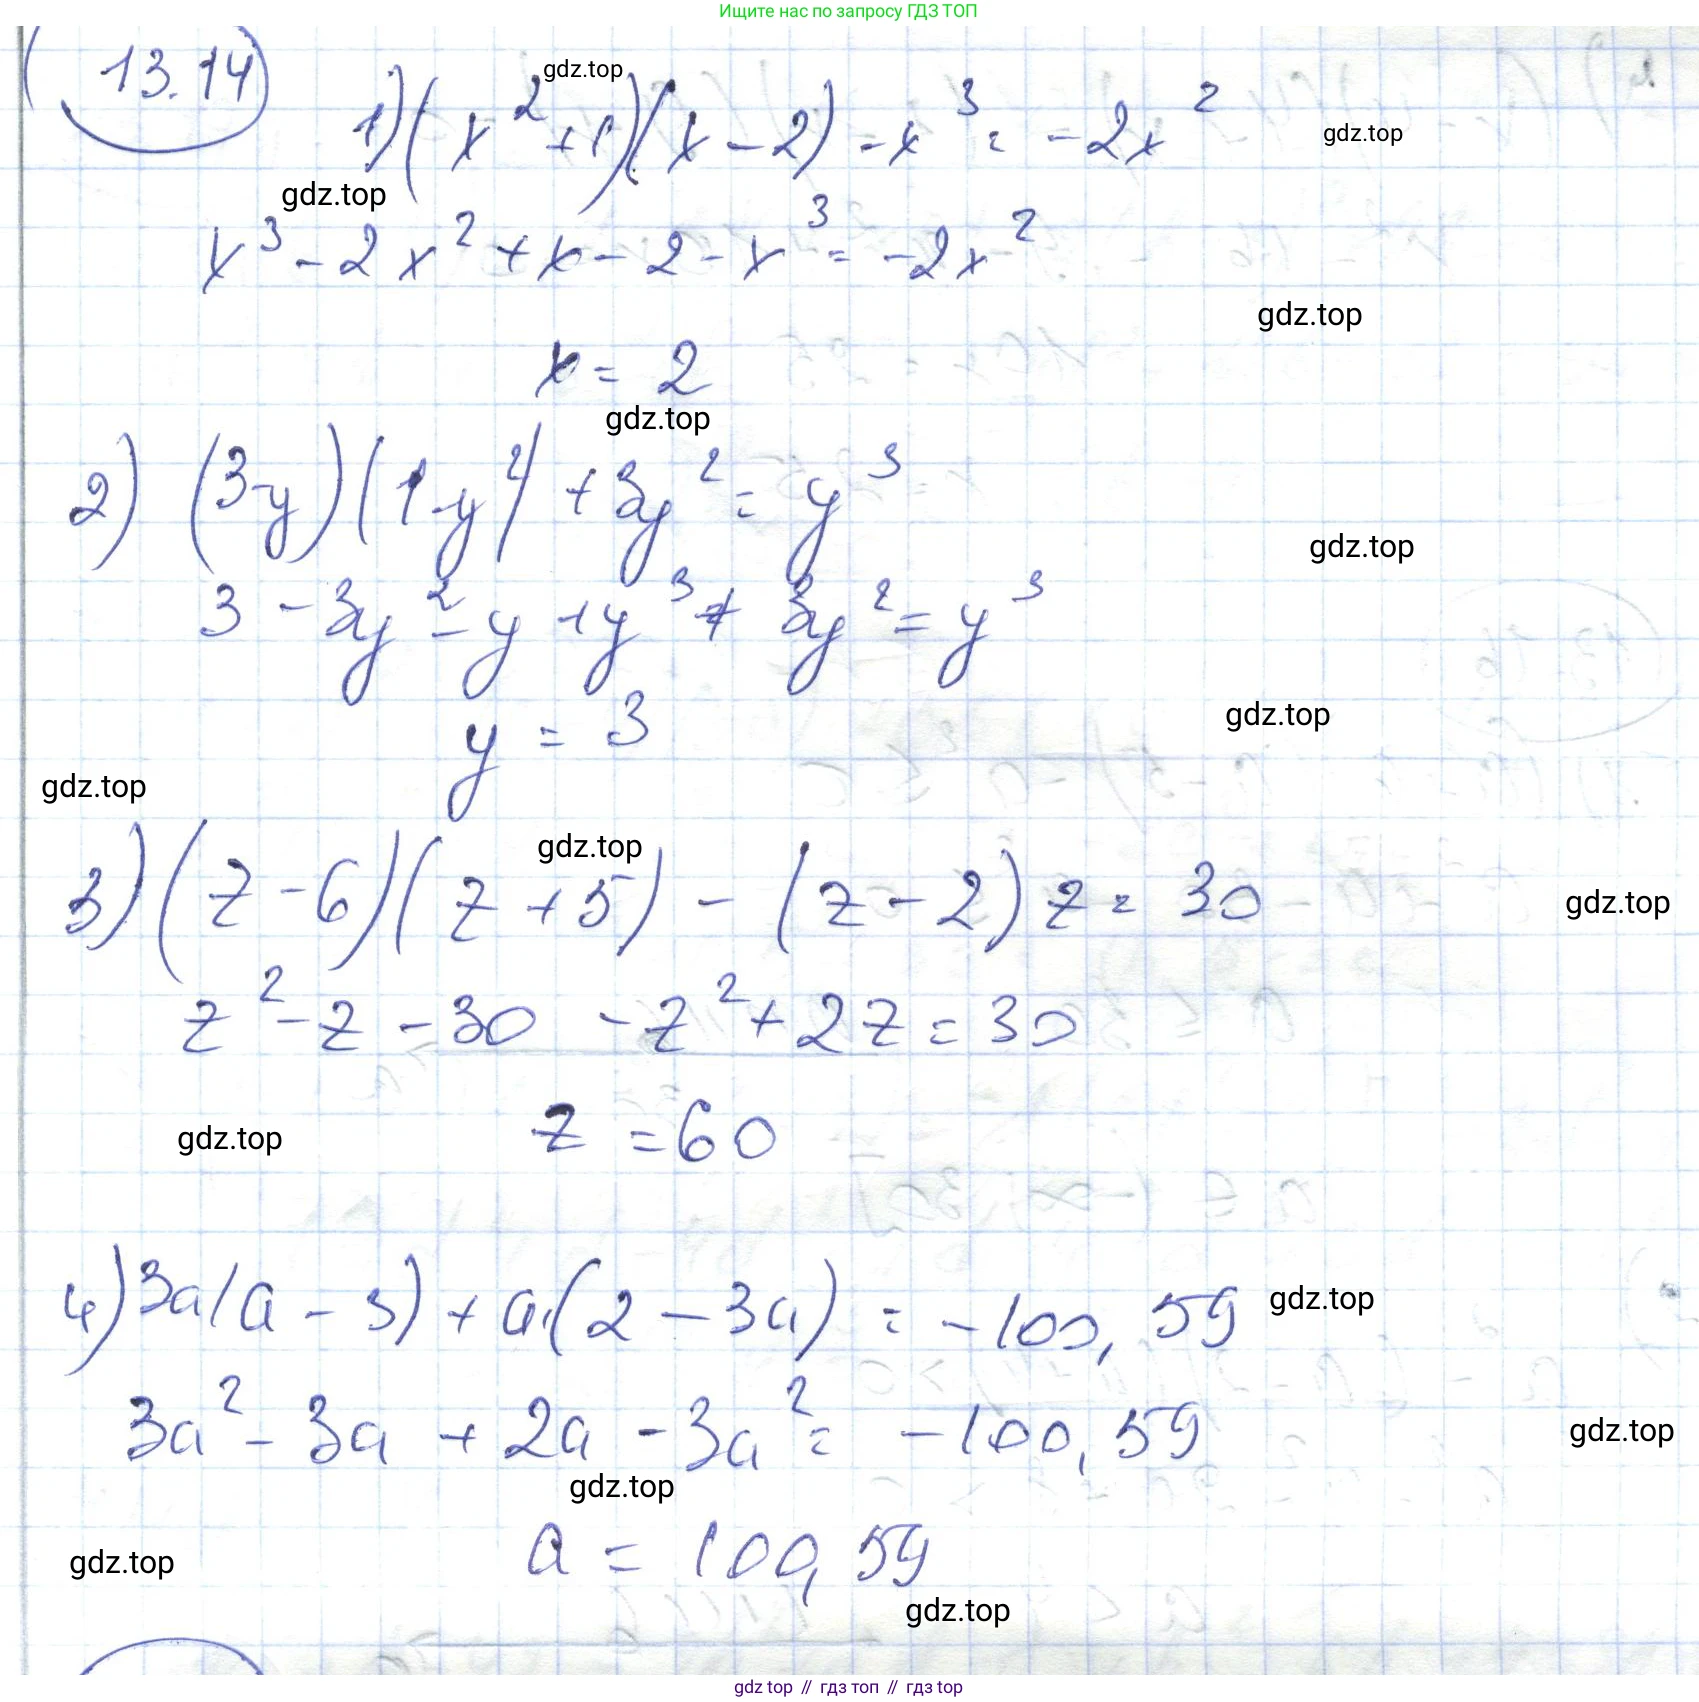 Ищите нас по запросу ГДЗ ТОП
13.14
gdz.top
1) (x² + 1)(x - 2) - x³ = -2x²
gdz.top
gdz.top
x³ - 2x² + x - 2 - x³ = -2x²
gdz.top
x = 2
gdz.top
2) (3-y)(1-y²) + 3y² = y³
gdz.top
3 - 3y² - y + y³ + 3y² = y³
gdz.top
y = 3
gdz.top
gdz.top
3) (z - 6)(z + 5) - (z - 2)z = 30
gdz.top
z² - z - 30 - z² + 2z = 30
gdz.top
z = 60
4) 3a(a - 3) + a(2 - 3a) = -100,59
gdz.top
3a² - 3a + 2a - 3a² = -100,59
gdz.top
gdz.top
a = 100,59
gdz.top
gdz.top
gdz.top // гдз топ // гдз top